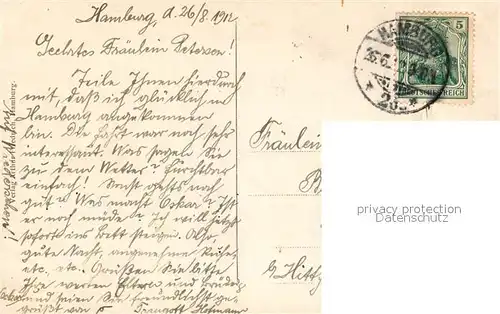 Hamburg, d. 26/8. 1912
Geehrtes Fräulein Peterson!
Teile Ihnen hierdurch
mit, daß ich glücklich in
Hamburg angekommen
bin. Die Fahrt war noch sehr
interessant. Was sagen Sie
zu dem Wetter? Furchtbar
einfach! Sonst geht's noch
gut? Was macht Oskar? Ist
er noch müde? Ich will jetzt
sofort ins Bett steigen. Also
gute Nacht, angenehme Ruhe,
etc. etc. Grüßen Sie bitte
Ihre werten Eltern und Brüder
und seien Sie freundlichst ge-
grüßt von Traugott Hofmann
Auf Wiedersehen!
Hamburg.
HAMBURG
26.8.
* 20. *
5
DEUTSCHES REICH
Fräulein
privacy protection
Datenschutz